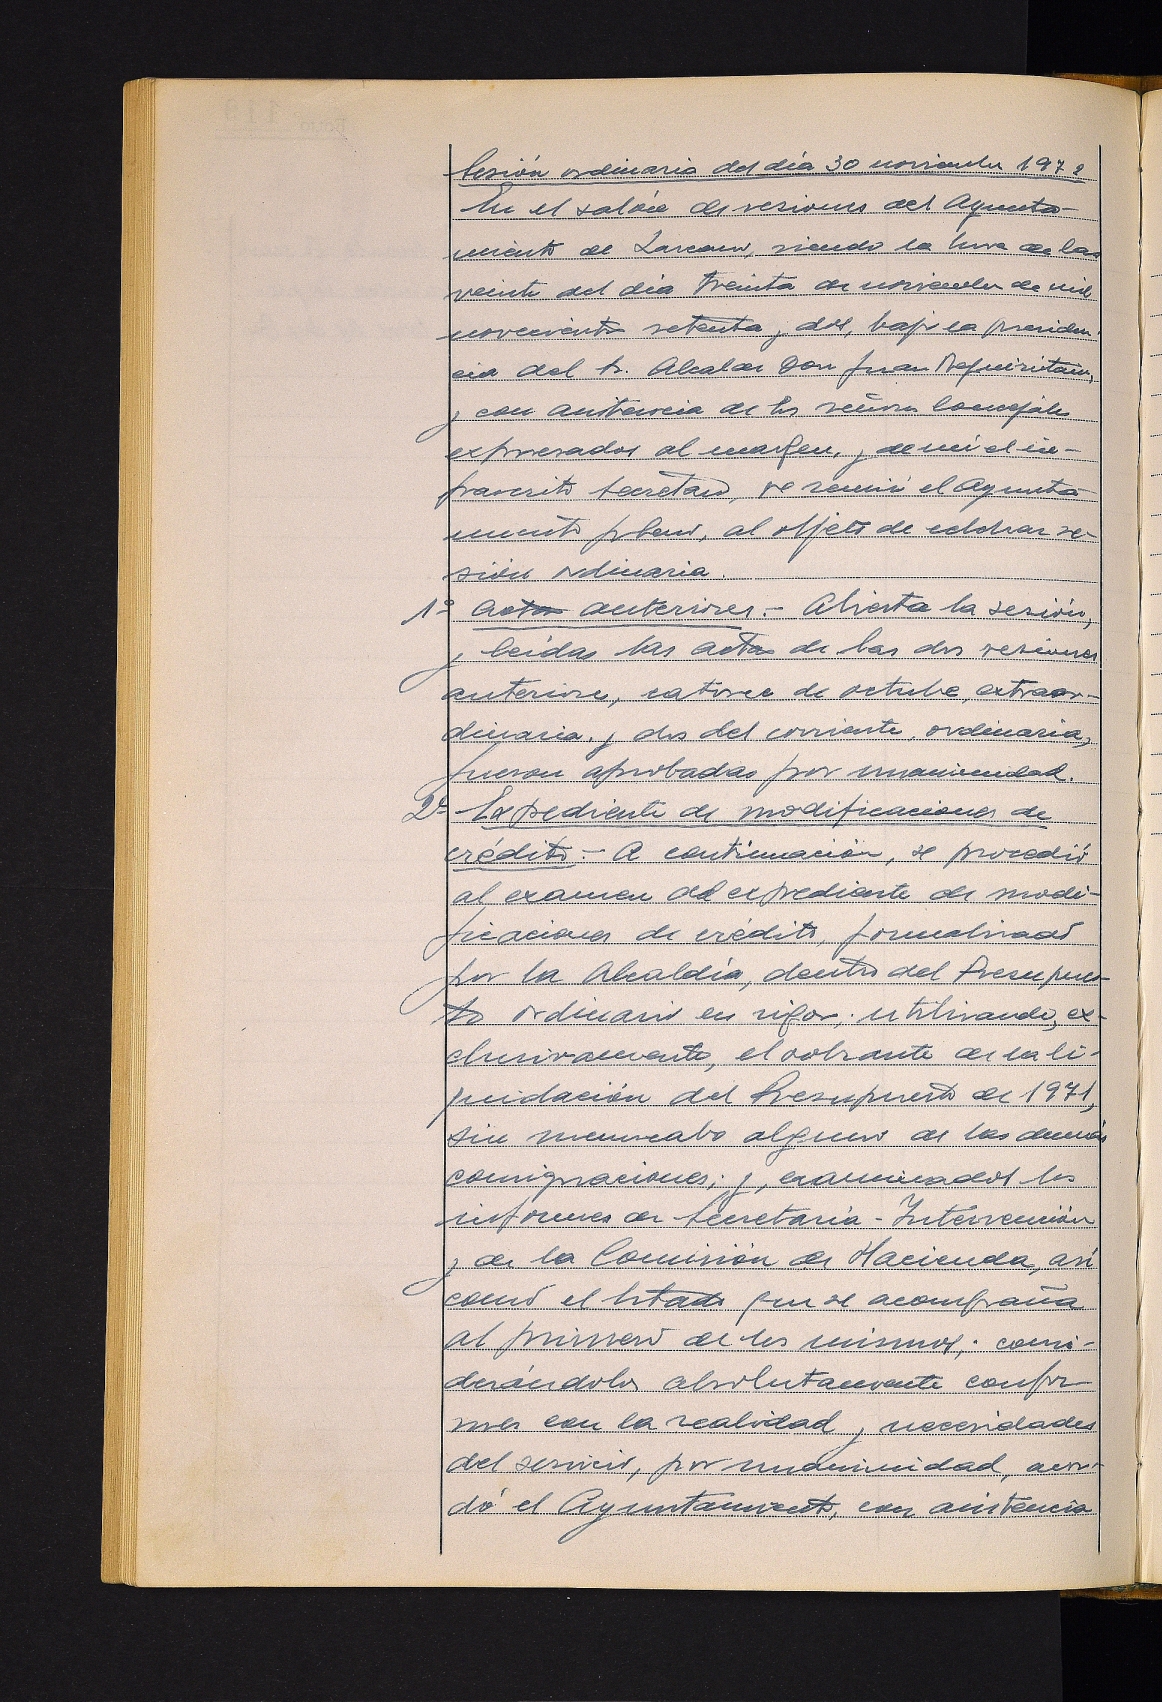 Sesión ordinaria del día 30 noviembre 1972
En el salón de sesiones del Ayunta-
miento de Lazcano, siendo la hora de las
veinte del día treinta de noviembre de mil
novecientos setenta y dos, bajo la presiden-
cia del Sr. Alcalde Don Juan
y con asistencia de los señores Concejales
expresados al margen, y de mí el in-
frascrito Secretario, se reunió el Ayunta-
miento pleno, al objeto de celebrar se-
sión ordinaria.
1º Actas anteriores.- Abierta la sesión,
y leídas las actas de las dos sesiones
anteriores, catorce de octubre, extraor-
dinaria, y dos del corriente, ordinaria,
fueron aprobadas por unanimidad.
2º Expediente de modificaciones de
crédito.- A continuación, se procedió
al examen del expediente de modi-
ficaciones de crédito, formalizado
por la Alcaldía, dentro del Presupues-
to ordinario en vigor; utilizando, ex-
clusivamente, el sobrante de la li-
quidación del Presupuesto de 1971,
sin menoscabo alguno de las demás
consignaciones; y, examinados los
informes de Secretaría-Intervención
y de la Comisión de Hacienda, así
como el Estado que se acompaña
al primero de los mismos; consi-
derándolos absolutamente confor-
mes con la realidad y necesidades
del servicio, por unanimidad, acor-
dó el Ayuntamiento, con asistencia